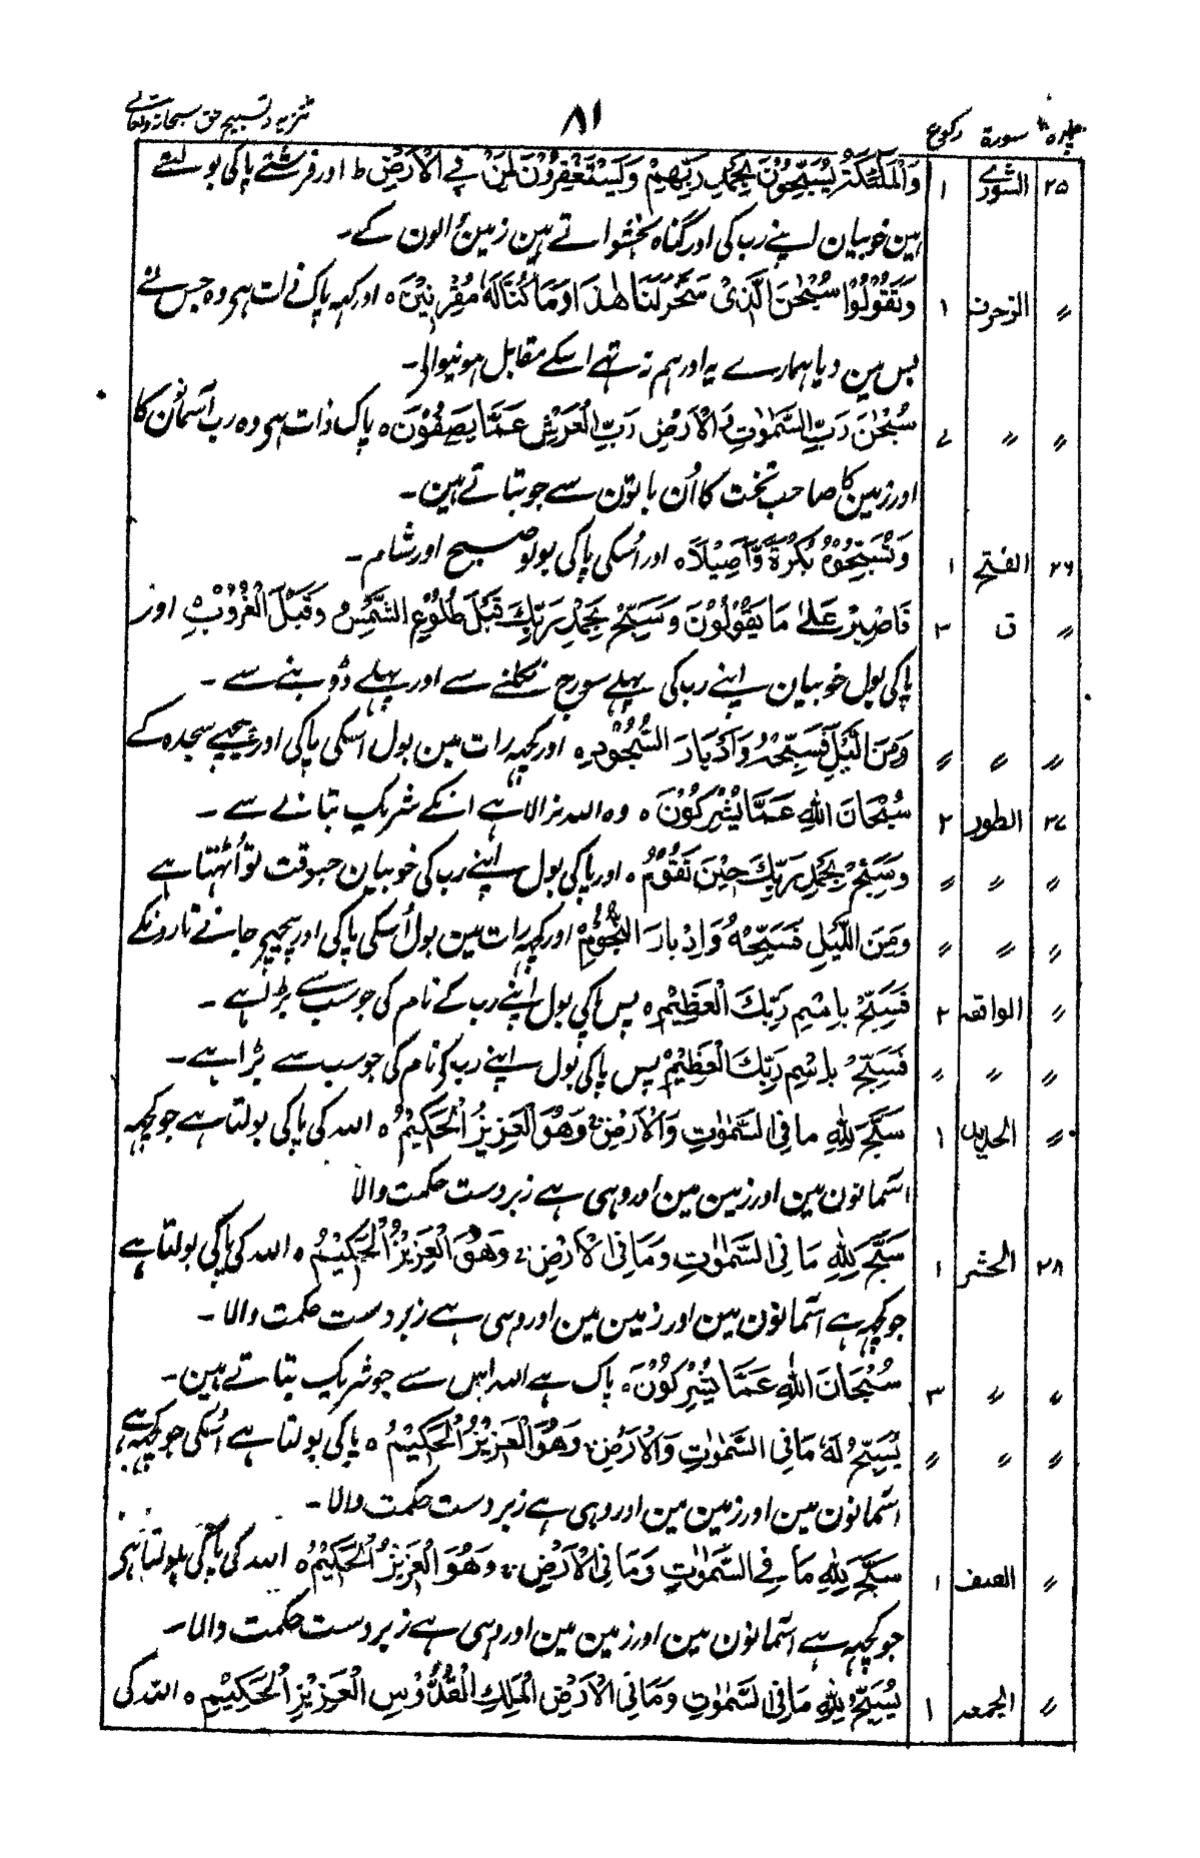 پارہ سورۃ رکوع ۸۱ تنزیہ و تسبیح حق سبحانہ وتعالے
۲۵ الشورے ۱ وَالْمَلٰٓئِكَةُ يُسَبِّحُوْنَ بِحَمْدِ رَبِّهِمْ وَيَسْتَغْفِرُوْنَ لِمَنْ فِے الْاَرْضِ ط اور فرشتے پاکی بولتے
ہین خوبیان اپنے رب کی اور گناہ بخشواتے ہین زمین والون کے۔
〃 الزخرف ۱ وَتَقُوْلُوْا سُبْحٰنَ الَّذِیْ سَخَّرَ لَنَا هٰذَا وَمَا كُنَّا لَهٗ مُقْرِنِيْنَ ہ اور کہہ پاک ذات ہی وہ جس نے
بس مین دیا ہمارے یہ اور ہم نہ تہے اسکے مقابل ہونیوالی۔
〃 〃 ۷ سُبْحٰنَ رَبِّ السَّمٰوٰتِ وَالْاَرْضِ رَبِّ الْعَرْشِ عَمَّا يَصِفُوْنَ ہ پاک ذات ہی وہ رب آسمانون کا
اور زمین کا صاحب تخت کا اُن باتون سے جو بتاتے ہین۔
۲۶ الفتح ۱ وَتُسَبِّحُوْهُ بُكْرَةً وَّاَصِيْلًا ہ اور اُسکی پاکی بولو صبح اور شام۔
〃 ق ۳ فَاصْبِرْ عَلٰى مَا يَقُوْلُوْنَ وَسَبِّحْ بِحَمْدِ رَبِّكَ قَبْلَ طُلُوْعِ الشَّمْسِ وَقَبْلَ الْغُرُوْبِ ہ اور
پاکی بول خوبیان اپنے رب کی پہلے سورج نکلنے سے اور پہلے ڈوبنے سے۔
〃 〃 〃 وَمِنَ الَّيْلِ فَسَبِّحْهُ وَاَدْبَارَ السُّجُوْدِ ہ اور کچہہ رات مین بول اسکی پاکی اور پیچہے سجدہ کے
۲۷ الطور ۲ سُبْحَانَ اللّٰهِ عَمَّا يُشْرِكُوْنَ ہ وہ اللہ نرالا ہے انکے شریک بتانے سے۔
〃 〃 〃 وَسَبِّحْ بِحَمْدِ رَبِّكَ حِيْنَ تَقُوْمُ ہ اور پاکی بول اپنے رب کی خوبیان جسوقت تو اُٹہتا ہے
〃 〃 〃 وَمِنَ اللَّيْلِ فَسَبِّحْهُ وَاِدْبَارَ النُّجُوْمِ ہ اور کچہہ رات مین بول اُسکی پاکی اور پیچہے جانے تارونکے
〃 الواقعہ ۲ فَسَبِّحْ بِاسْمِ رَبِّكَ الْعَظِيْمِ ہ پس پاکی بول اپنے رب کے نام کی جو سب سے بڑا ہے۔
〃 〃 〃 فَسَبِّحْ بِاسْمِ رَبِّكَ الْعَظِيْمِ پس پاکی بول اپنے رب کے نام کی جو سب سے بڑا ہے۔
〃 الحدید ۱ سَبَّحَ لِلّٰهِ مَا فِی السَّمٰوٰتِ وَالْاَرْضِ وَهُوَ الْعَزِيْزُ الْحَكِيْمُ ہ اللہ کی پاکی بولتا ہے جو کچہہ
آسمانون مین اور زمین مین اور وہی ہے زبردست حکمت والا
۲۸ الحشر ۱ سَبَّحَ لِلّٰهِ مَا فِی السَّمٰوٰتِ وَمَا فِی الْاَرْضِ وَهُوَ الْعَزِيْزُ الْحَكِيْمُ ہ اللہ کی پاکی بولتا ہے
جو کچہہ ہے آسمانون مین اور زمین مین اور وہی ہے زبردست حکمت والا۔
〃 〃 ۳ سُبْحَانَ اللّٰهِ عَمَّا يُشْرِكُوْنَ ہ پاک ہے اللہ اس سے جو شریک بتاتے ہین۔
〃 〃 〃 يُسَبِّحُ لَهٗ مَا فِی السَّمٰوٰتِ وَالْاَرْضِ وَهُوَ الْعَزِيْزُ الْحَكِيْمُ ہ پاکی بولتا ہے اُسکی جو کچہہ ہے
آسمانون مین اور زمین مین اور وہی ہے زبردست حکمت والا۔
〃 الصف ۱ سَبَّحَ لِلّٰهِ مَا فِے السَّمٰوٰتِ وَمَا فِی الْاَرْضِ وَهُوَ الْعَزِيْزُ الْحَكِيْمُ ہ اللہ کی پاکی بولتا ہی
جو کچہہ ہے آسمانون مین اور زمین مین اور وہی ہے زبردست حکمت والا۔
〃 الجمعہ ۱ يُسَبِّحُ لِلّٰهِ مَا فِی السَّمٰوٰتِ وَمَا فِی الْاَرْضِ الْمَلِكِ الْقُدُّوْسِ الْعَزِيْزِ الْحَكِيْمِ ہ اللہ کی